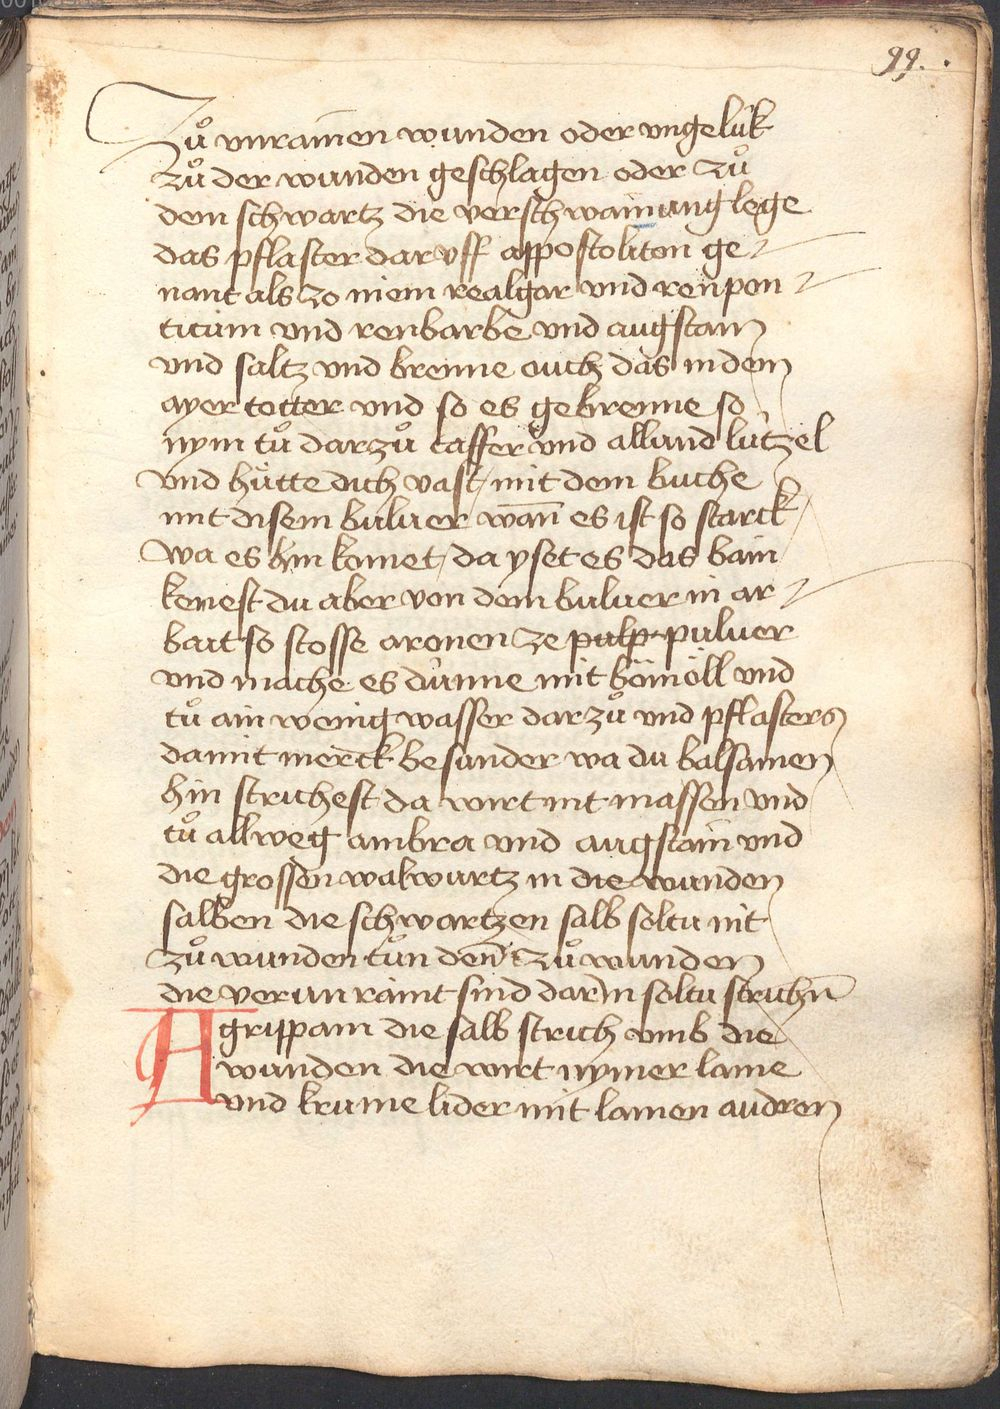 99.
Zů vnrainen wunden oder vngelúk
Zů der wunden geschlagen oder zů
dem schwartz die verschwainung lege
das pflaster dar vff appostoliton ge
nant als zo niem realgar vnd renpon
ticum vnd renbarbe vnd augstain
vnd saltz vnd brenne ouch das in dem
ayer totter vnd so es gebrenne so
nym tů darzů caffer vnd alland lútzel
vnd hu̇tte dich vast mit dem buche
mit disem buluer wan̄ es ist so starck
wa es hin komet da yset es das bain
kemest du aber von dem buluer in ar
bait so stosse aronen ze pulp puluer
vnd mache es dúnne mit bömöll vnd
tů ain wenig wasser darzů vnd pflasters
damit merck besunder wa du balsamen
hin strichest da wirt nit massen vnd
tů allweg ambra vnd augstain vnd
die grossen walwurtz in die wunden
salben die schwartzen salb soltu nit
zů wunden tůn den̄ zů wunden
die verunraint sind darin soltu strichn̄
Agrippam die salb strich vmb die
wunden die wirt nymer lame
vnd krume lider mit lamen audren